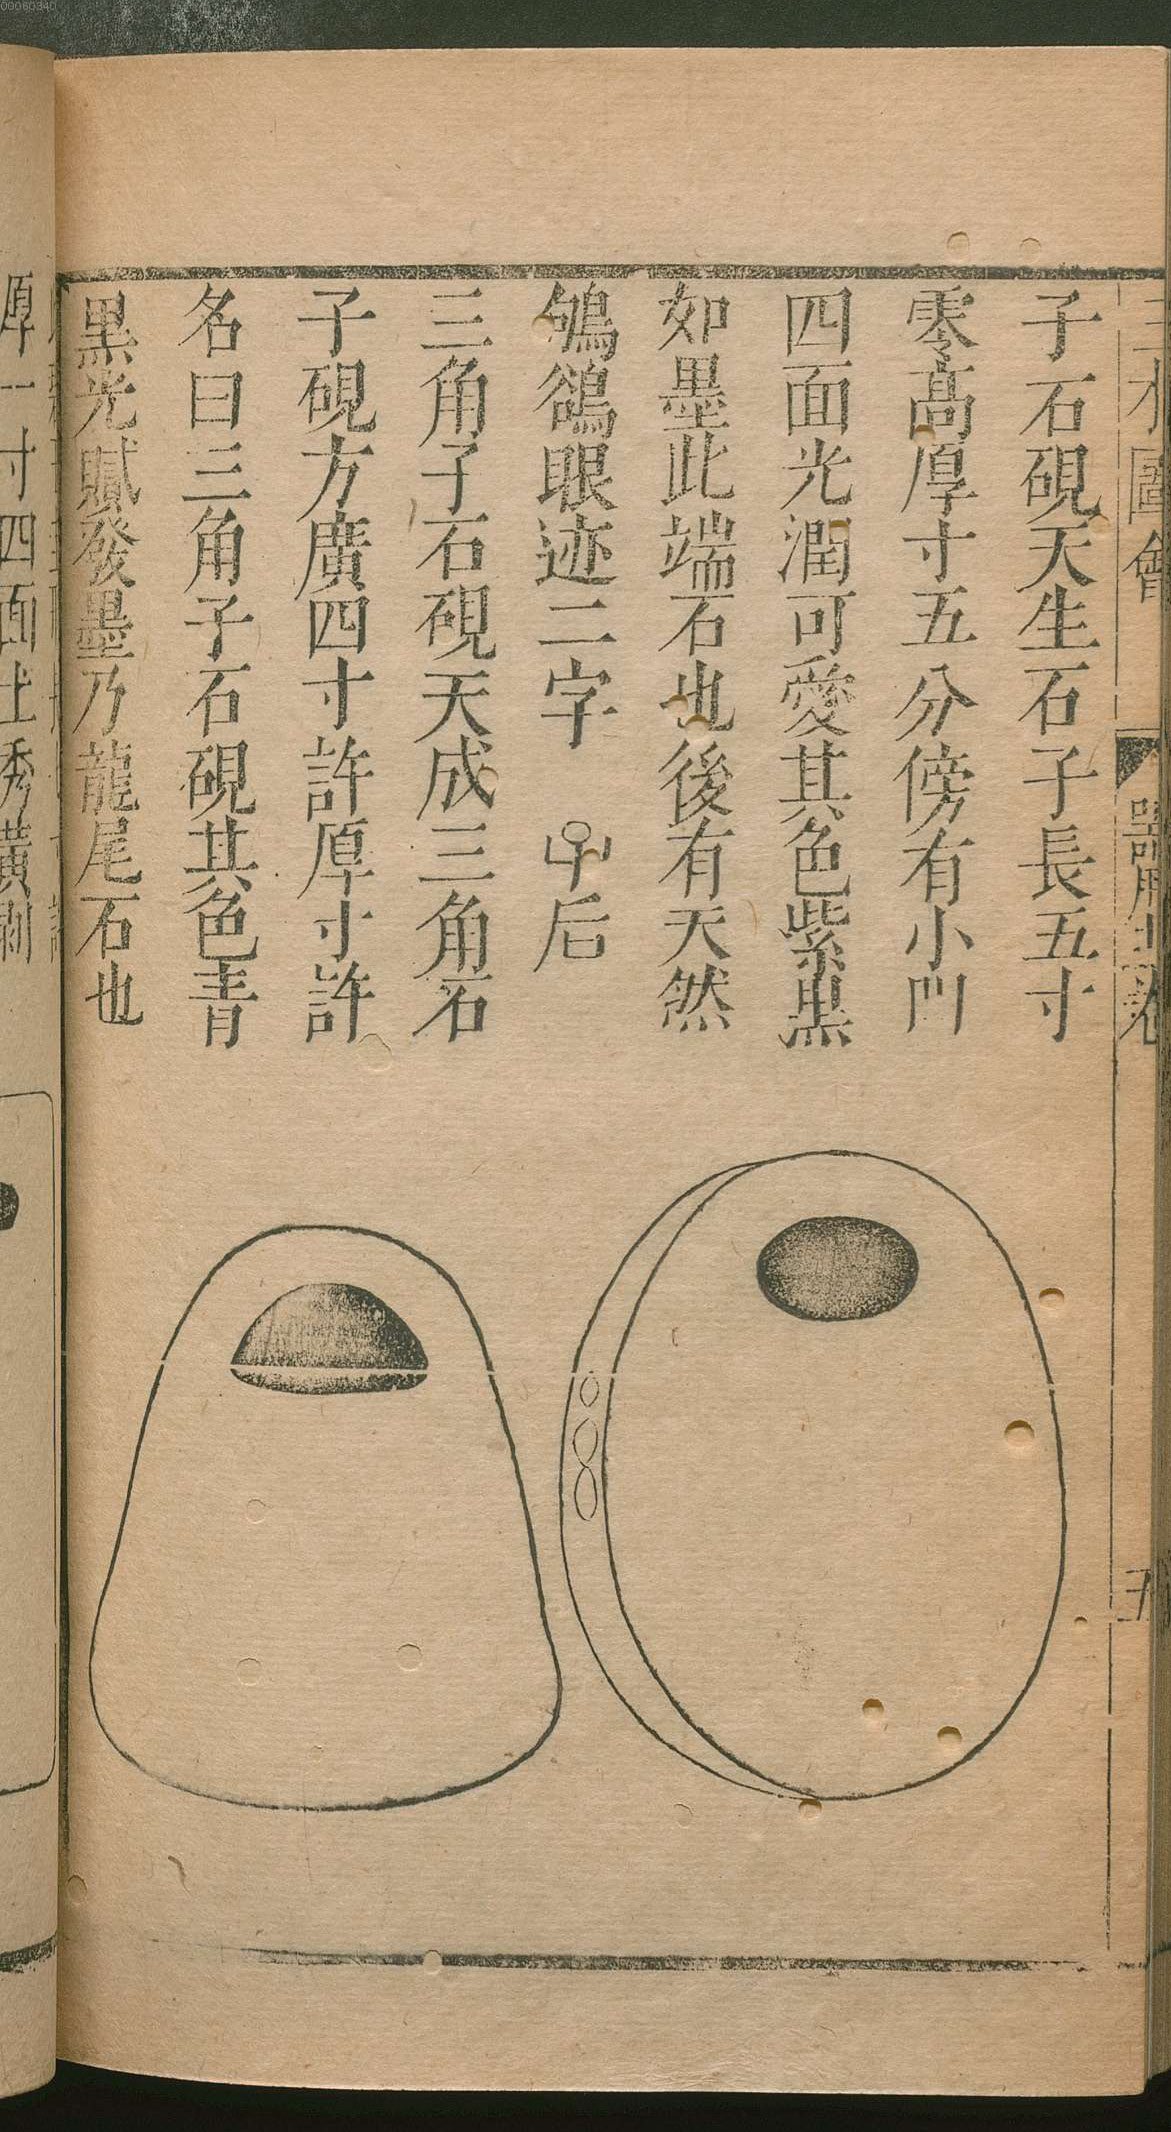 00060340
三才圖會
器用
五
子石硯天生石子長五寸
零髙厚寸五分傍有小
四面光潤可愛其色紫黑
如墨此端石也後有天然
鴝鵒眼迹二字　后
三角子石硯天成三角石
子硯方廣四寸許厚寸許
名曰三角子石硯其色青
黑光膩發墨乃龍尾石也
厚一寸四面土秀黃剝